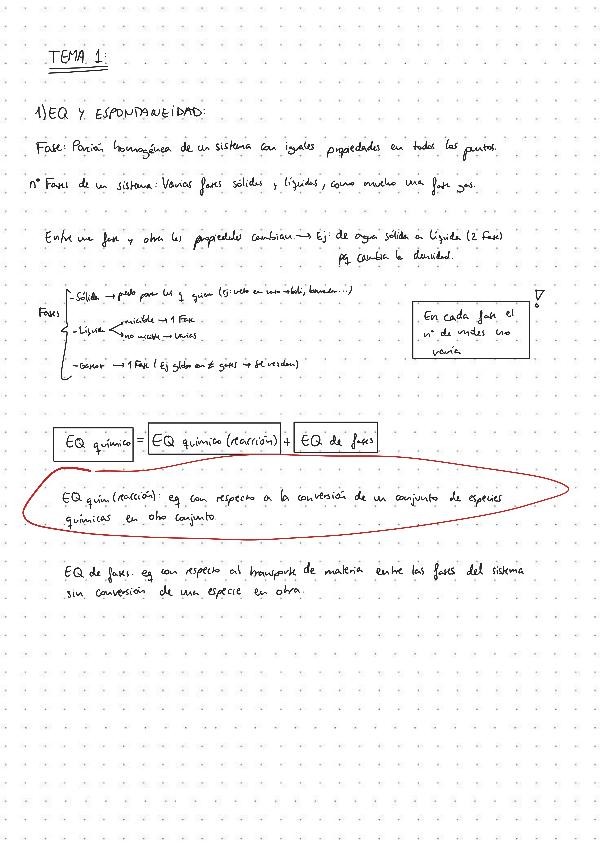 TEMA 1:
1) EQ Y ESPONTANEIDAD:
Fase: Porción homogénea de un sistema con iguales propiedades en todos los puntos.
nº Fases de un sistema: Varias fases sólidas y líquidas, como mucho una fase gas.
Entre una fase y otra las propiedades cambian → Ej: de agua sólida a líquida (2 Fases)
pq cambia la densidad.
Fases
- Sólida →
- Líquida
miscible → 1 Fase
no miscible → varias
- Gaseosa → 1 Fase (Ej globo con ≠ gases →
!
En cada fase el
nº de moles no
varía
EQ químico = EQ químico (reacción) + EQ de fases
EQ quím (reacción): eq con respecto a la conversión de un conjunto de especies
químicas en otro conjunto.
EQ de fases: eq con respecto al transporte de materia entre las fases del sistema
sin conversión de una especie en otra.